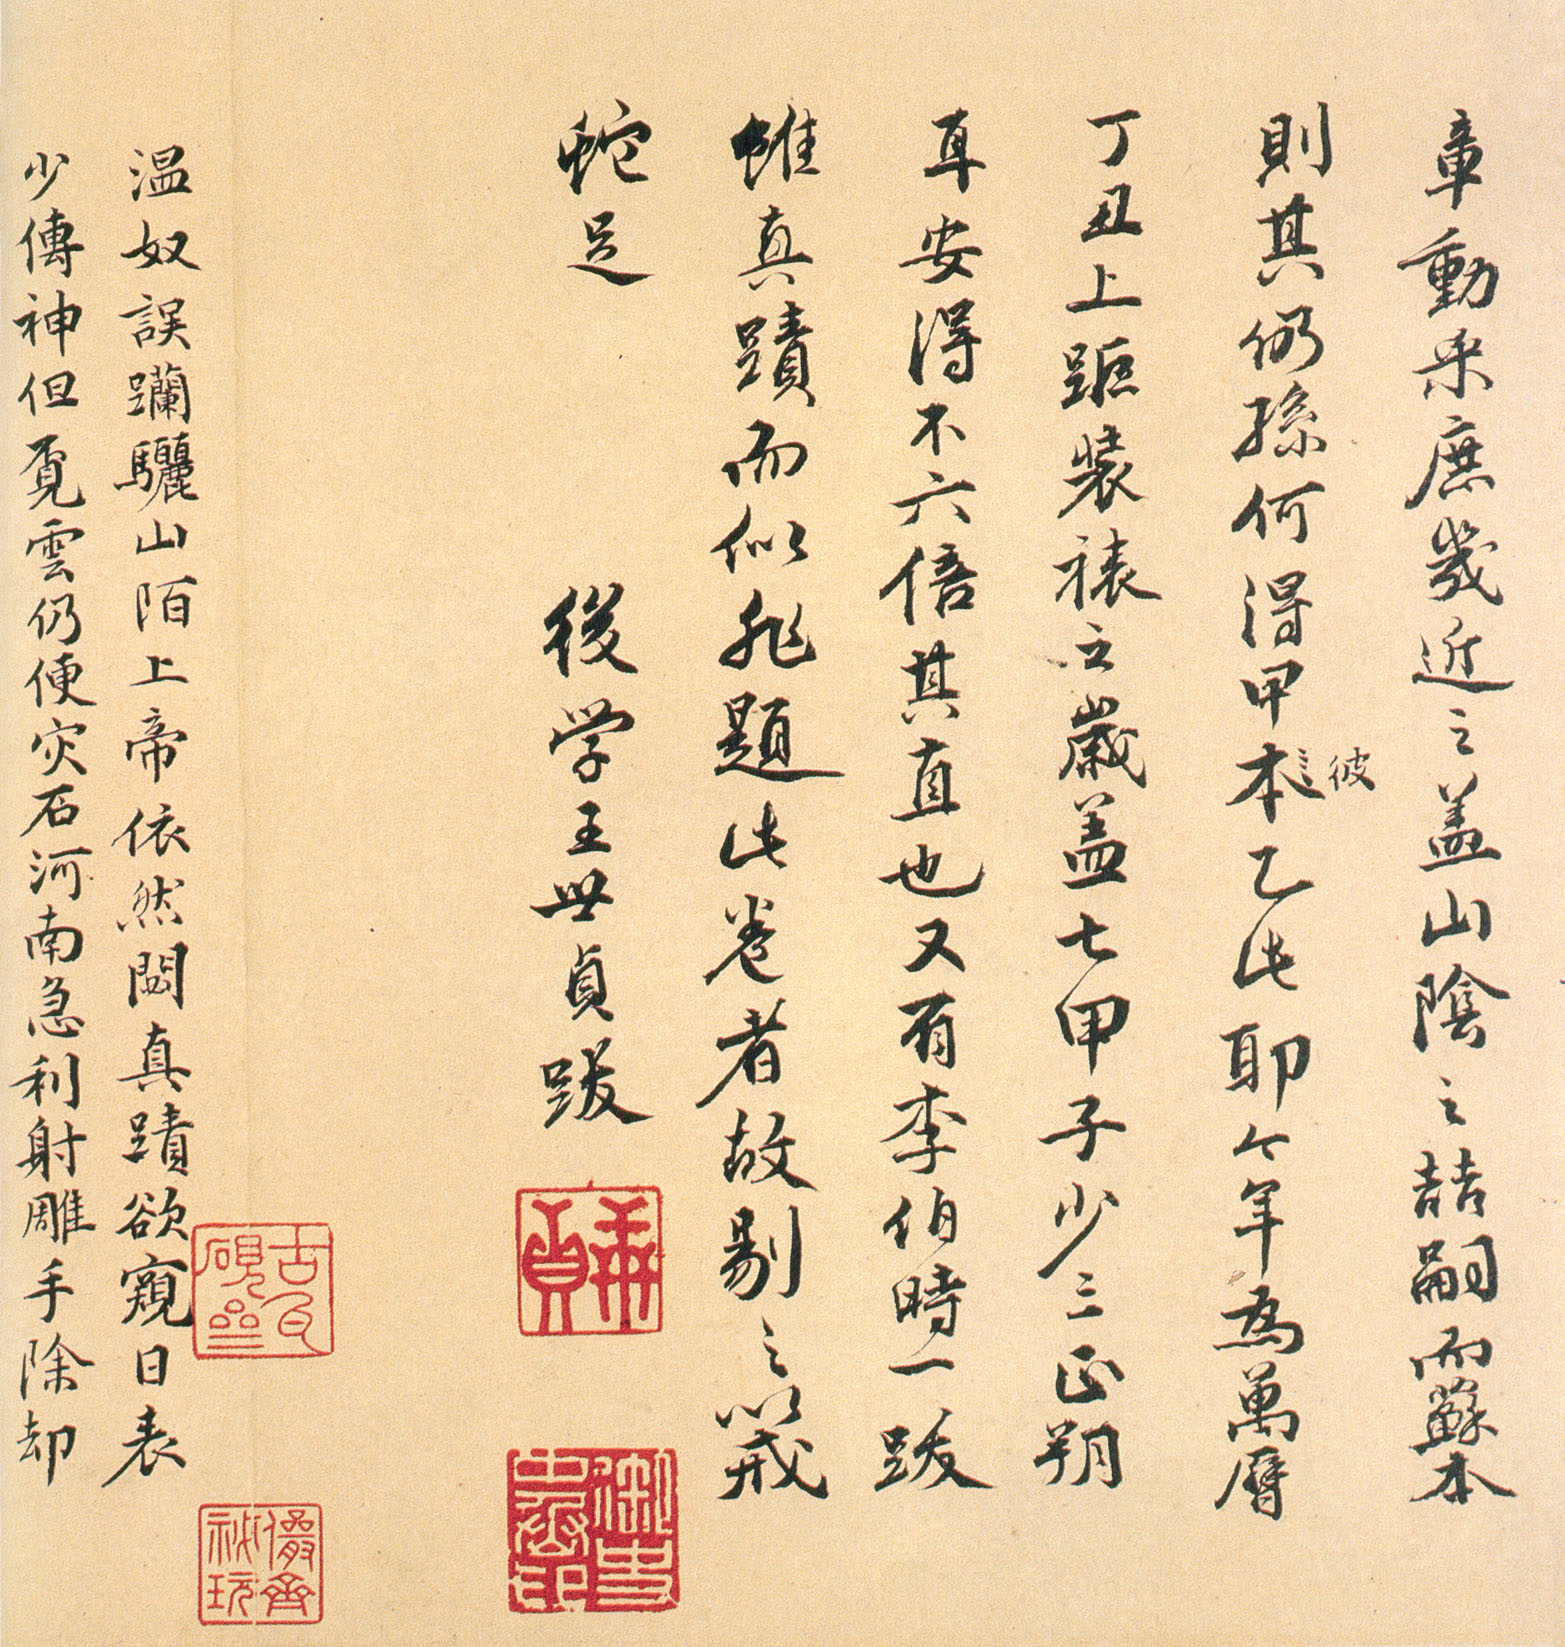 章動采庶幾近之盖山陰之喆嗣而蘇本
則其仍孫何得甲本乙此耶今年為萬曆
彼
丁丑上距裝裱之歲盖七甲子少三正朔
耳安得不六倍其直也又有李伯時一跋
雖真蹟而似非題此卷者故剔之以戒
蛇足
後学王世貞跋
元美
貞
古瓦
硯
儼齋
秘玩
溫奴誤躪驪山陌上帝依然閟真蹟欲窺日表
少傳神但覓雲仍便灾石河南急利射雕手除却